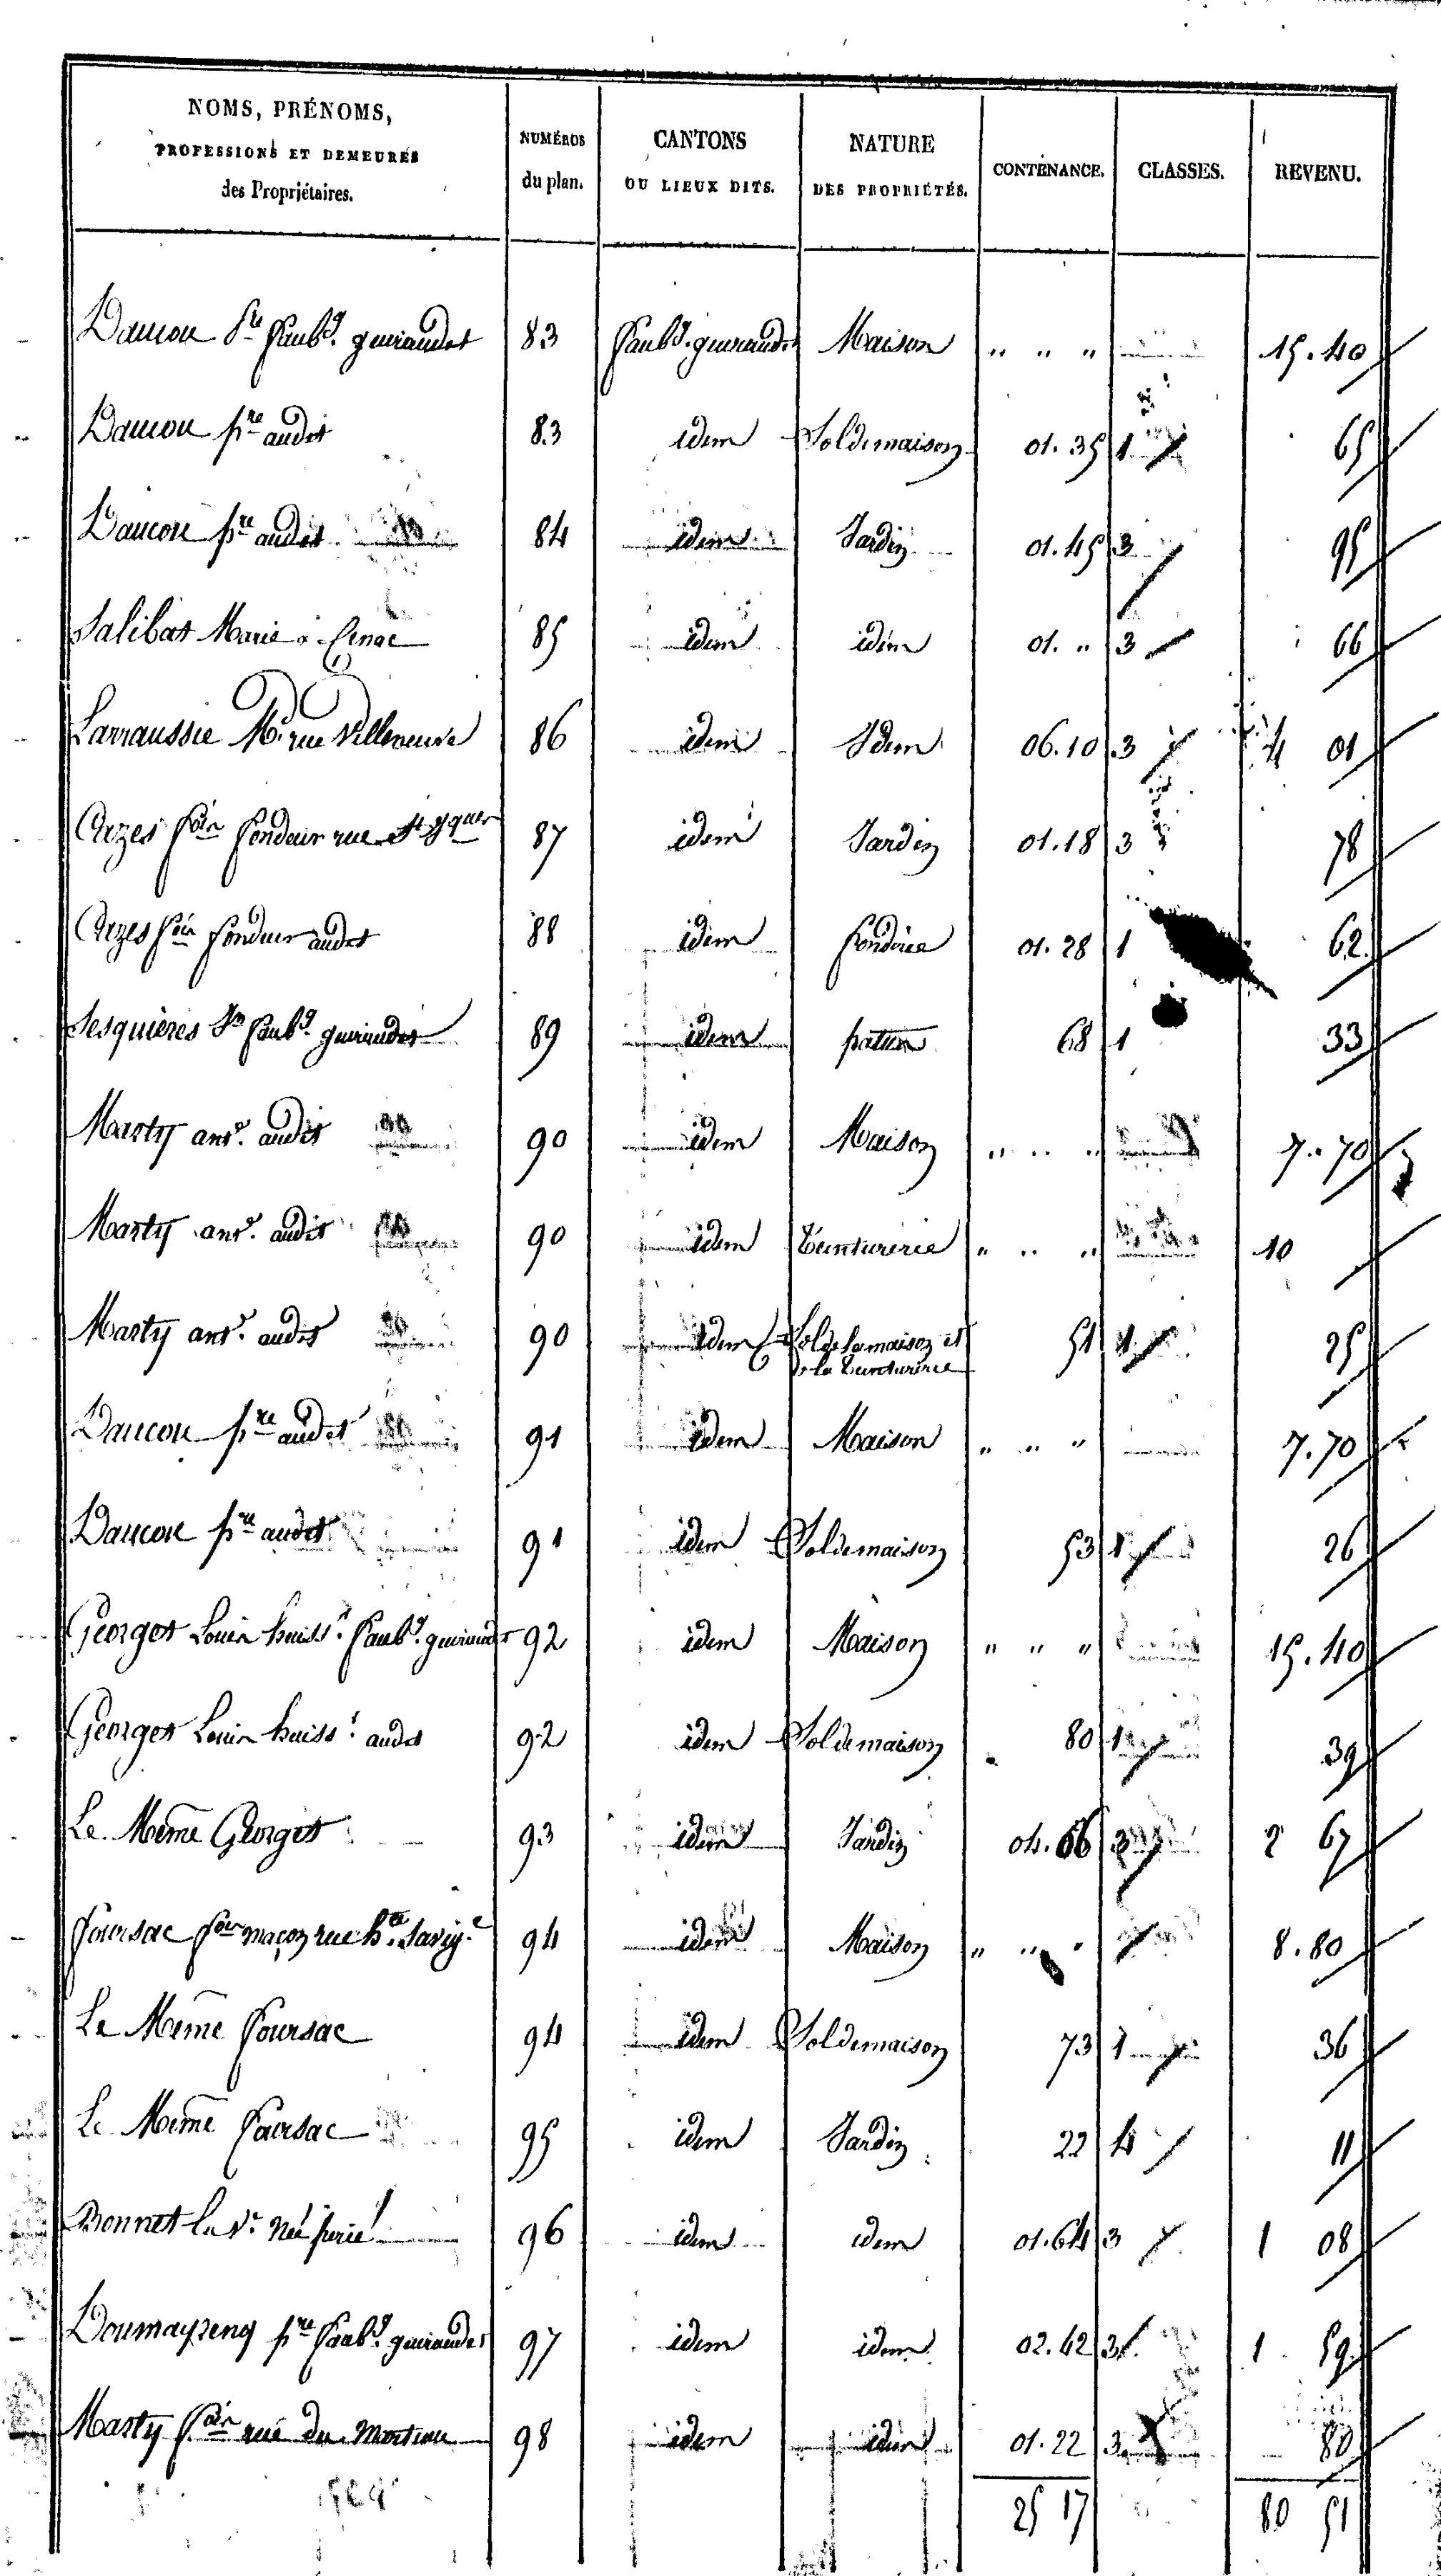 NOMS, PRÉNOMS, PROFESSIONS ET DEMEURES des Propriétaires. NUMÉROS du plan. CANTONS OU LIEUX DITS. NATURE DES PROPRIÉTÉS. CONTENANCE. CLASSES. REVENU.
Daucou pre faubg. guiraudet 83 faubg. guiraudet Maison " " " 15.40
Daucou pre audit 83 idem Sol de maison 01.35 1 65
Daucou pre audit 84 idem Jardin 01.45 3 95
Salibat Marie à 85 idem idem 01. " 3 66
Larraussie rue Villeneuve 86 idem Idem 06.10 3 4 01
Cuzes fois fondeur rue 87 idem Jardin 01.18 3 78
Cuzes fois fondeur audit 88 idem fonderie 01.28 1 62
Sesquières Jn faubg. guiraudet 89 idem patus 68 1 33
Marty ant. audit 90 idem Maison " " " 7.70
Marty ant. audit 90 idem Teinturerie " " " 10
Marty ant. audit 90 idem Sol de la maison et de la Teinturerie 51 1 25
Daucou pre audit 91 idem Maison " " " 7.70
Daucou pre audit 91 idem Sol de maison 53 1 26
Georget Louis huissr. faubg. guiraudet 92 idem Maison " " " 15.40
Georget Louis huissr. audit 92 idem Sol de maison 80 1 39
Le Même Georget 93 idem Jardin 04.06 3 2 67
Foursac fois maçon rue hte. 94 idem Maison " " " 8.80
Le Même Foursac 94 idem Sol de maison 73 1 36
Le Même Foursac 95 idem Jardin 22 4 11
Bonnet la Ve. née 96 idem idem 01.64 3 1 08
Doumayreng pre faubg. guiraudet 97 idem idem 02.42 3 1 59
Marty fois rue du 98 idem idem 01.22 3 80
25 17 80 51